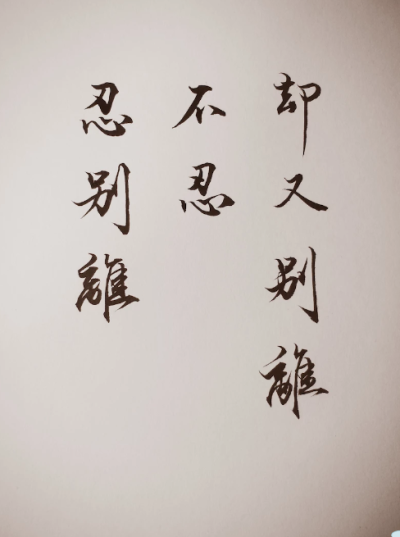 忍别離
不忍
却又别離